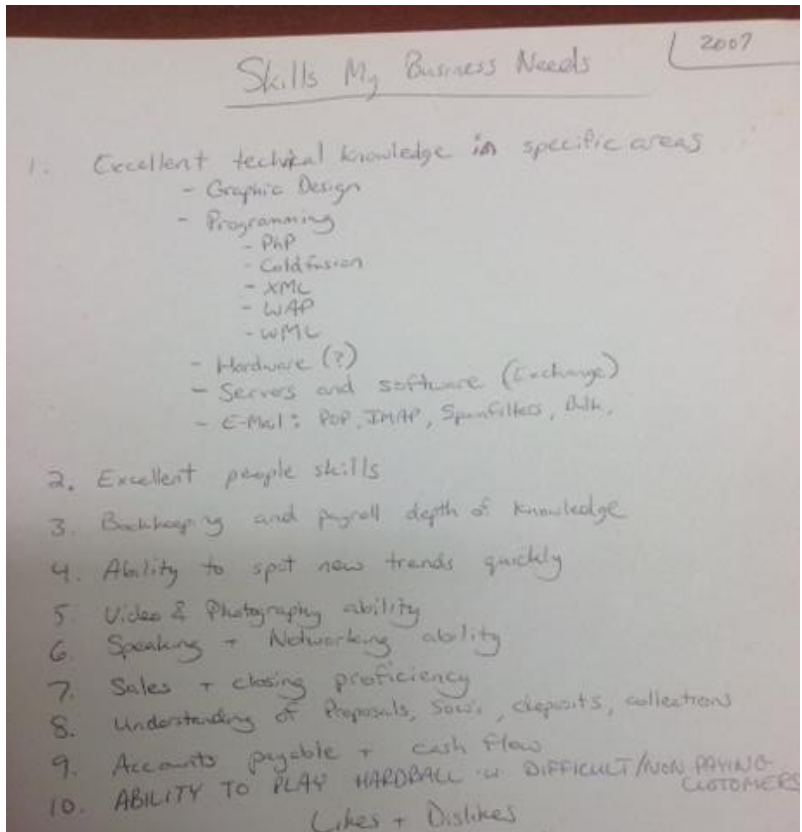 2007
Skills My Business Needs
1. Excellent technical knowledge in specific areas
- Graphic Design
- Programming
- PhP
- Coldfusion
- XML
- WAP
- WML
- Hardware (?)
- Servers and software (Exchange)
- E-Mail: POP, IMAP, Spamfilters, Bulk,
2. Excellent people skills
3. Bookkeeping and payroll depth of knowledge
4. Ability to spot new trends quickly
5. Video & Photography ability
6. Speaking + Networking ability
7. Sales + closing proficiency
8. Understanding of Proposals, SOW's, deposits, collections
9. Accounts payable + cash flow
10. ABILITY TO PLAY HARDBALL DIFFICULT/NON PAYING
CUSTOMERS
Likes + Dislikes